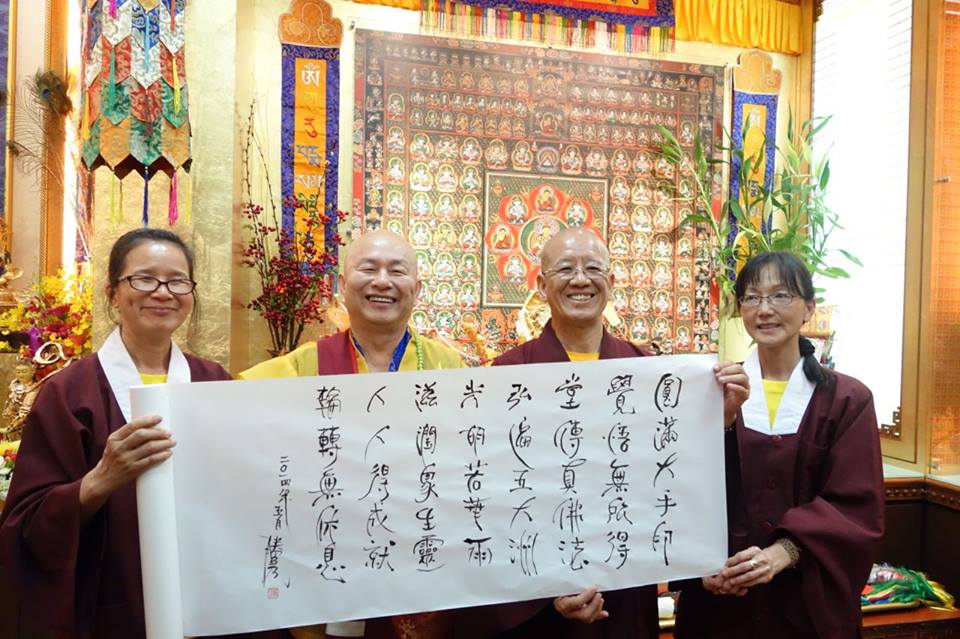 圓滿大手印
覺悟無所得
堂傳真佛法
弘遍五大洲
光明若華雨
滋潤眾生靈
人人得成就
輪轉無休息